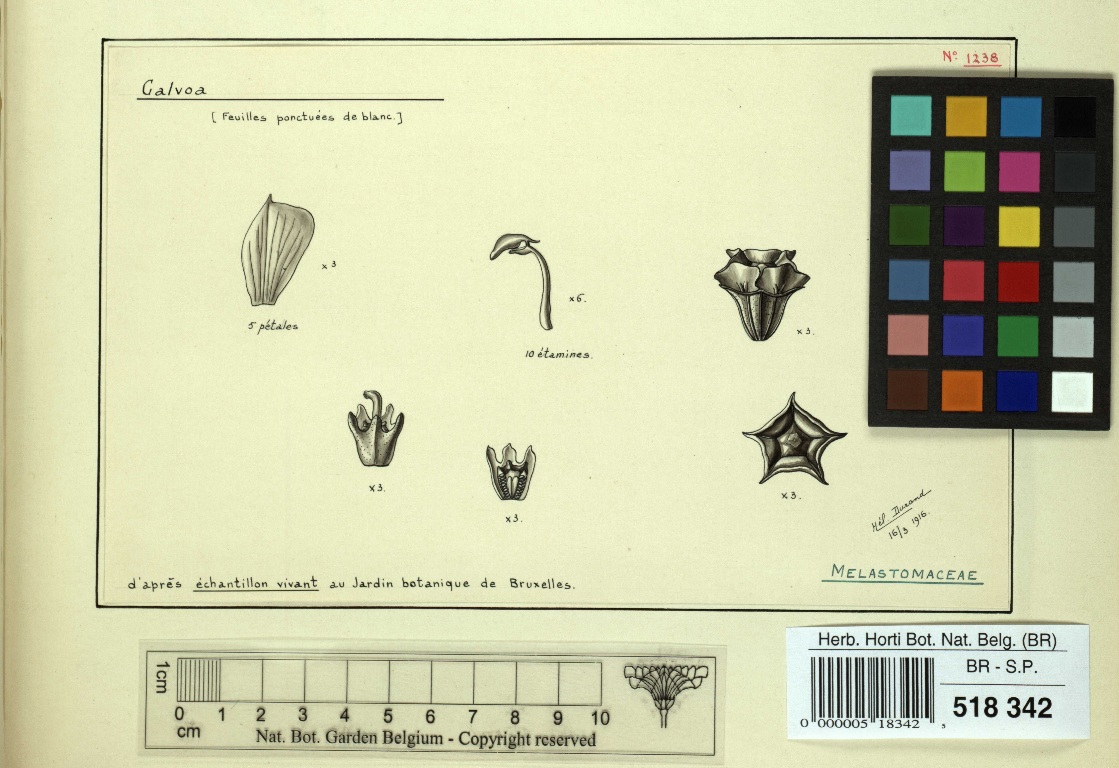 Nº 1238
Calvoa
[ Feuilles ponctuées de blanc.]
x 3
5 pétales
x6.
10 étamines.
x3.
x3.
x3.
x3.
Hél Durand
16/3 1916.
d'après échantillon vivant au Jardin botanique de Bruxelles.
MELASTOMACEAE
1cm
0 1 2 3 4 5 6 7 8 9 10
cm
Nat. Bot. Garden Belgium - Copyright reserved
Herb. Horti Bot. Nat. Belg. (BR)
BR - S.P.
518 342
0 000005 18342